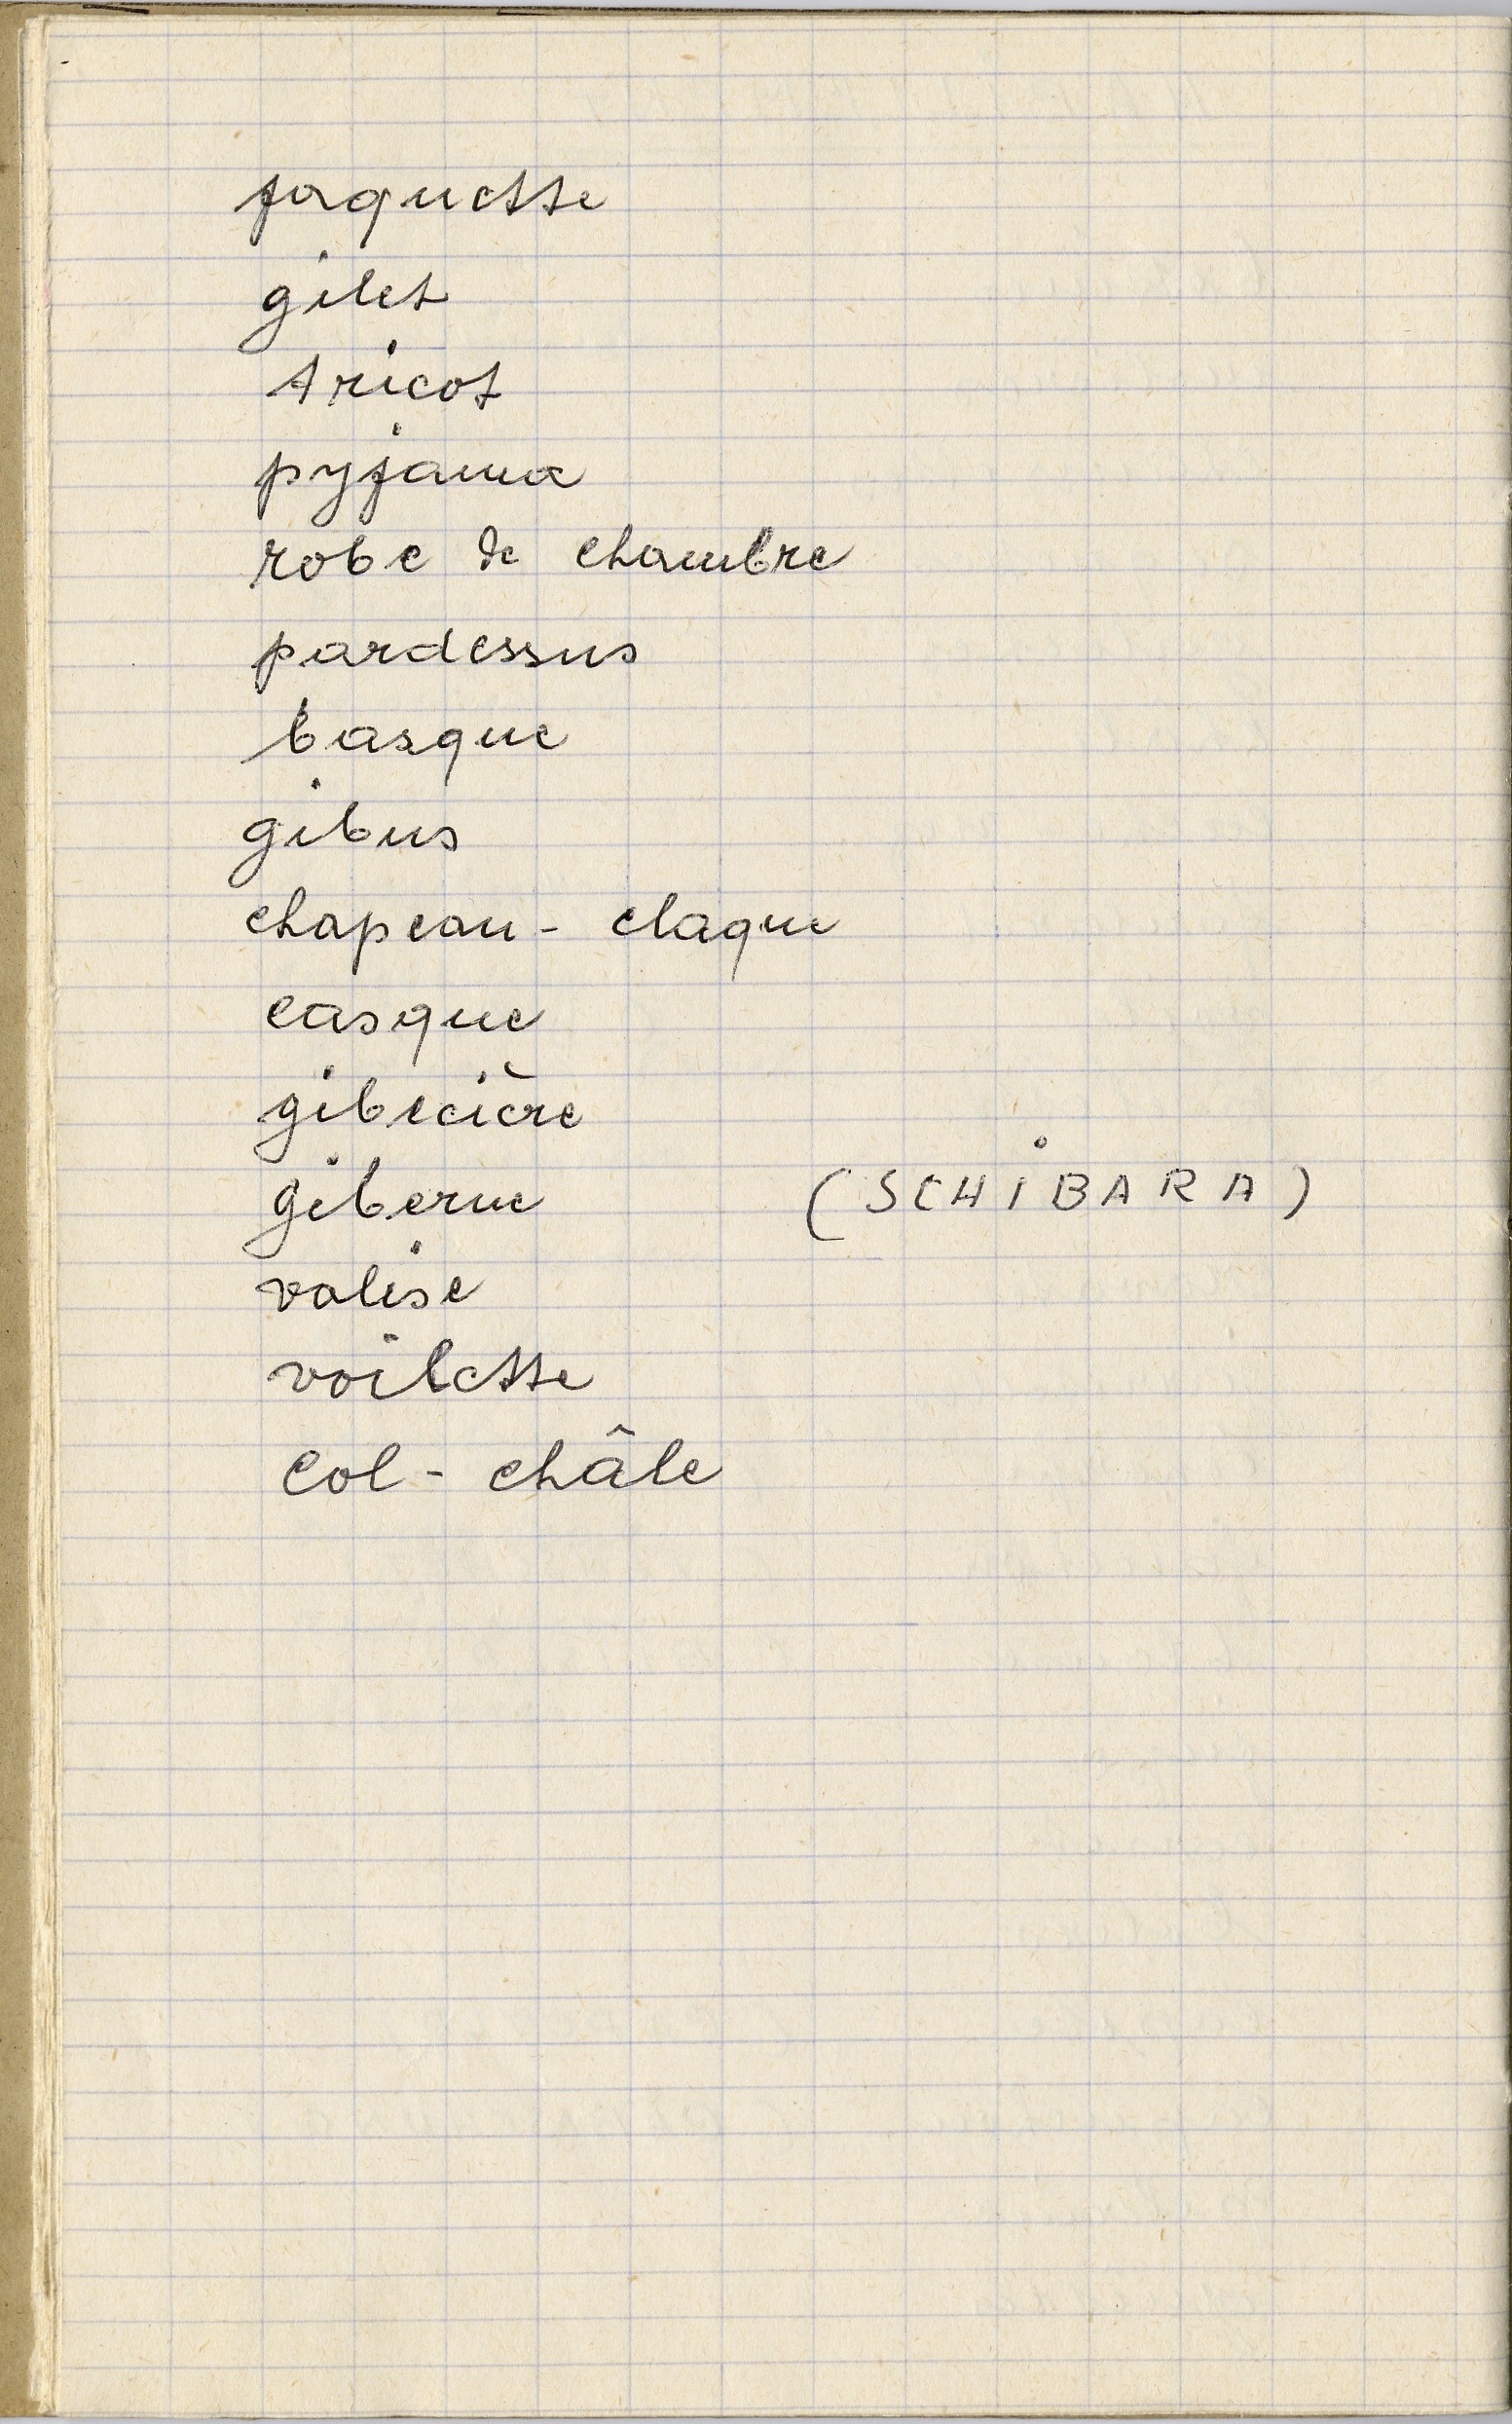 jaquette
gilet
tricot
pyjama
robe de chambre
pardessus
basque
gibus
chapeau - claque
casque
gibecière
giberne (SCHIBARA)
valise
voilette
col - châle